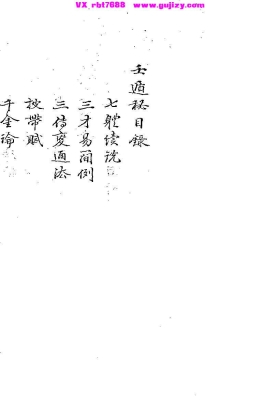 VX rbt7688 www.gujizy.com
壬遁秘目錄
七體續說
三才易簡例
三傳變通法
按帶賦
千金瑜